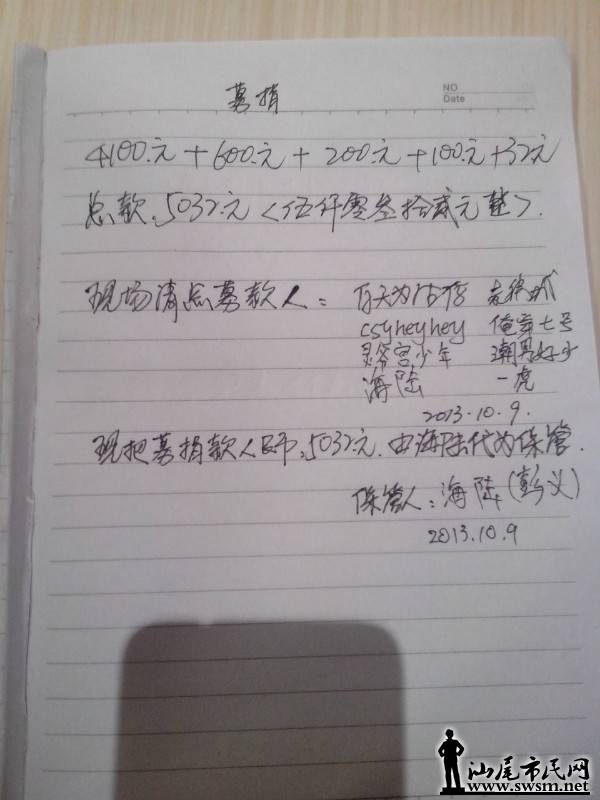 募捐
NO
Date
4100.元+600.元+200.元+100.元+32元
总款.5032.元<伍仟零叁拾贰元整>.
现场清点募款人:
csyheyhey 俺第七号
少年 潮男好少
海陆 一虎
2013.10.9.
现把募捐款人民币.5032.元.由海陆代为保管.
保管人:海陆(彭义)
2013.10.9
汕尾市民网
www.swsm.net